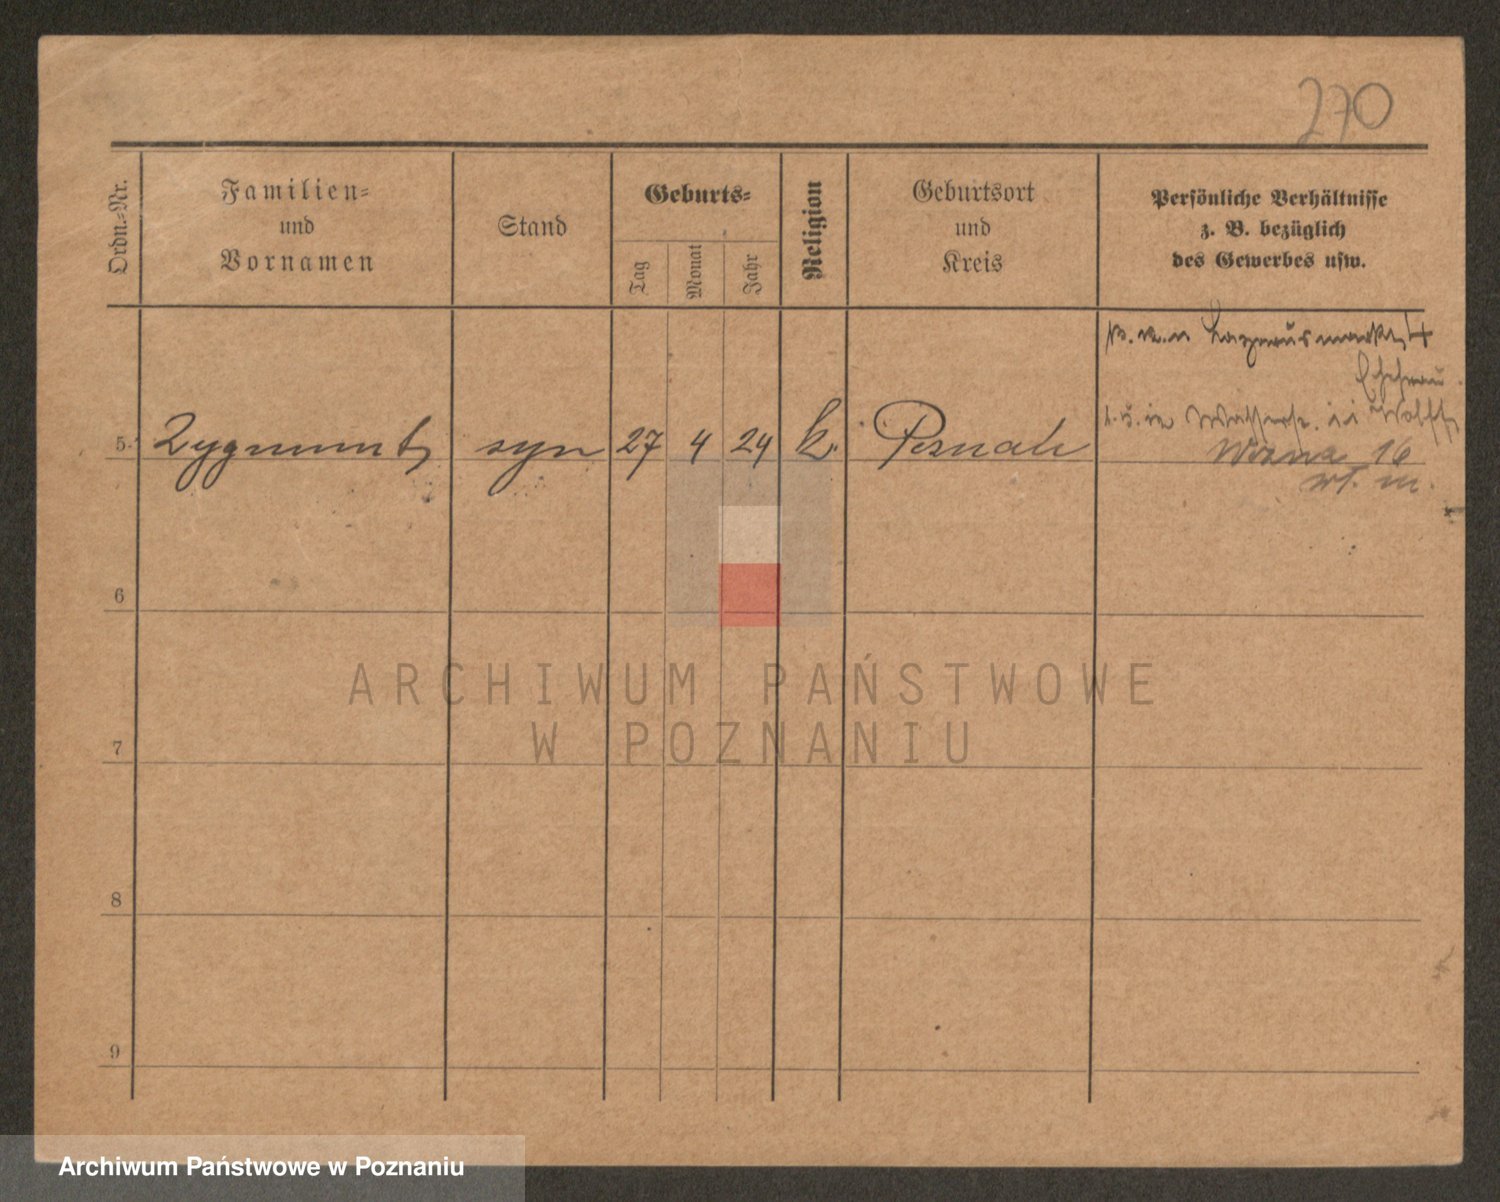 270
Ordn.-Nr.
Familien-
und
Vornamen
Stand
Geburts-
Tag
Monat
Jahr
Religion
Geburtsort
und
Kreis
Persönliche Verhältnisse
z. B. bezüglich
des Gewerbes usw.
Lazarusmarkt 4
Ehefrau
5. Zygmunt syn 27 4 24 k. Poznań
16
6
7
8
9
ARCHIWUM PAŃSTWOWE
W POZNANIU
Archiwum Państwowe w Poznaniu